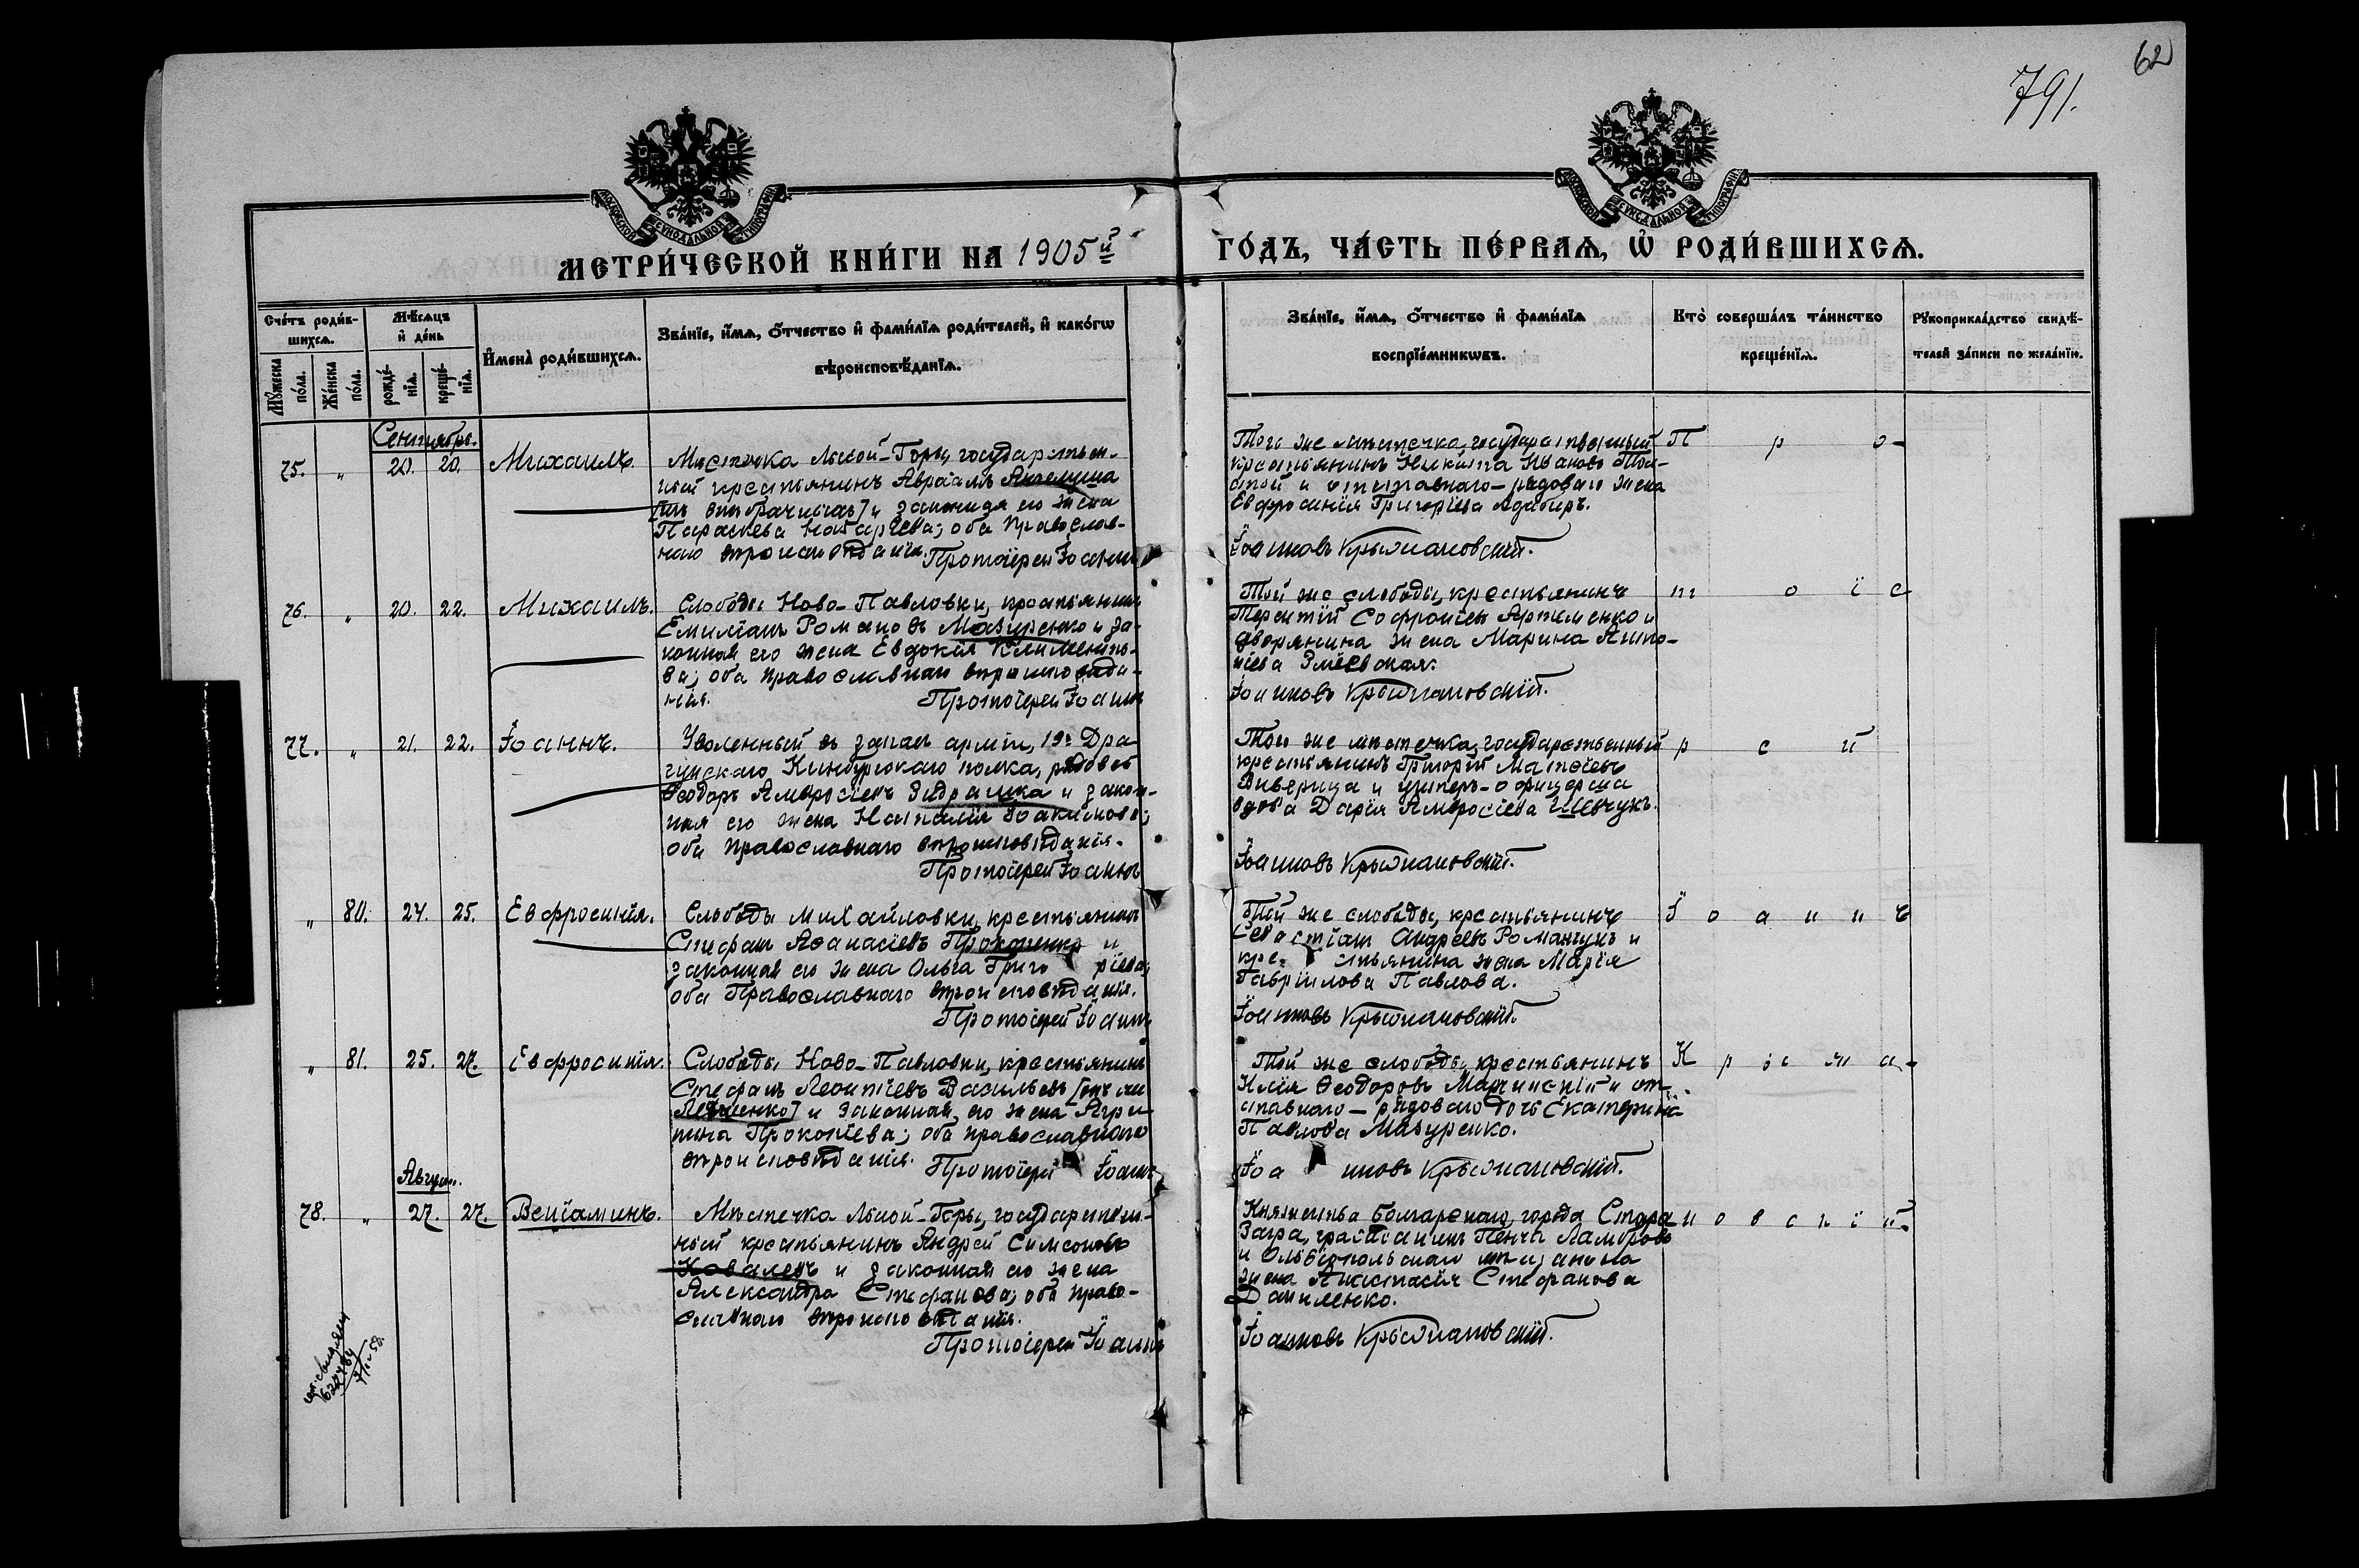 62
791.
МОСКОВСКОЙ СѴНОДАЛЬНОЙ ТИПОГРАФІИ
МОСКОВСКОЙ СѴНОДАЛЬНОЙ ТИПОГРАФІИ
МЕТРИ́ЧЕСКОЙ КНИ́ГИ НА 1905й ГО́ДЪ, ЧА́СТЬ ПЕ́РВАѦ, Ѽ РОДИ́ВШИХСѦ.
Сче́тъ роди́в-
шихсѧ.
Мꙋ́жеска по́ла.
Же́нска по́ла.
Мѣ́сѧцъ
и҆ де́нь
рожде́-
нїѧ.
креще́-
нїѧ.
И҆мена̀ роди́вшихсѧ.
Зва́нїе, и҆́мѧ, ѻ҆́тчество и҆ фами́лїѧ роди́телей, и҆ како́гѡ
вѣроисповѣ́данїѧ.
Зва́нїе, и҆́мѧ, ѻ҆́тчество и҆ фами́лїѧ
воспрїе́мникѡвъ.
Кто̀ соверша́лъ та́инство
креще́нїѧ.
Рꙋкоприкла́дство свидѣ́-
телей за́писи по жела́нїю.
Сентябрь.
75. " 20. 20. Михаилъ.
Мѣстечка Лысой-Горы, государствен-
ный крестьянинъ Авраамъ
и законная его жена
Параскева Назаріева; оба Православ-
наго вѣроисповѣданія. Протоіерей Іоаннъ
Того же мѣстечка, государственный
крестьянинъ Никита Ивановъ Тол-
стой и отставного-рядового жена
Евфросинія Григоріева
Іоанновъ Крыжановскій.
П р о-
76. " 20. 22. Михаилъ.
Слободы Ново-Павловки, крестьянинъ
Емиліанъ Романовъ Мазуренко и за-
конная его жена Евдокія Климентье-
ва; оба православнаго вѣроисповѣда-
нія. Протоіерей Іоаннъ
Той же слободы, крестьянинъ
Терентій Софроніевъ Артеменко и
дворянина жена Марина Анто-
ніева Змѣевская.
Іоанновъ Крыжановскій.
т о і е
77. " 21. 22. Іоаннъ.
Уволенный въ запасъ арміи, 19го Дра-
гунскаго Кинбурнскаго полка, рядовой
Ѳеодоръ Амвросіевъ и закон-
ная его жена Наталія Іоакимова;
оба православнаго вѣроисповѣданія.
Протоіерей Іоаннъ
Того же мѣстечка, государственный
крестьянинъ Григорій Матѳіевъ
Виверица и унтеръ-офицерша
вдова Дарія Амвросіева Шевчукъ.
Іоанновъ Крыжановскій.
р е й
" 80. 24. 25. Евфросинія.
Слободы Михайловки, крестьянинъ
Стефанъ Аѳанасіевъ Прокопенко и
законная его жена Ольга Григоріева;
оба Православнаго вѣроисповѣданія.
Протоіерей Іоаннъ
Той же слободы, крестьянинъ
Севастіанъ Андреевъ Романчукъ и
крестьянина жена Марія
Гавріилова Павлова.
Іоанновъ Крыжановскій.
І о а н н ъ
" 81. 25. 27. Евфросинія.
Слободы Ново-Павловки, крестьянинъ
Стефанъ Леонтіевъ Васильевъ [онъ же
Левченко] и законная его жена Агри-
пина Прокопіева; оба православнаго
вѣроисповѣданія. Протоіерей Іоаннъ
Той же слободы, крестьянинъ
Илія Ѳеодоровъ Мачинскій и от-
ставного-рядового дочь Екатерина
Павлова Мазуренко.
Іоанновъ Крыжановскій.
К р ы ж а-
Август.
78. " 27. 27. Веніаминъ.
Мѣстечка Лысой-Горы, государствен-
ный крестьянинъ Андрей Симеоновъ
Ковалевъ и законная его жена
Александра Стефанова; оба право-
славнаго вѣроисповѣданія.
Протоіерей Іоаннъ
Княжества Болгарскаго, города Стара-
Загра, гражданинъ Пенча Ламбровъ
и Ольвіопольскаго мѣщанина
жена Анастасія Стефанова
Даниленко.
Іоанновъ Крыжановскій.
н о в с к і й.